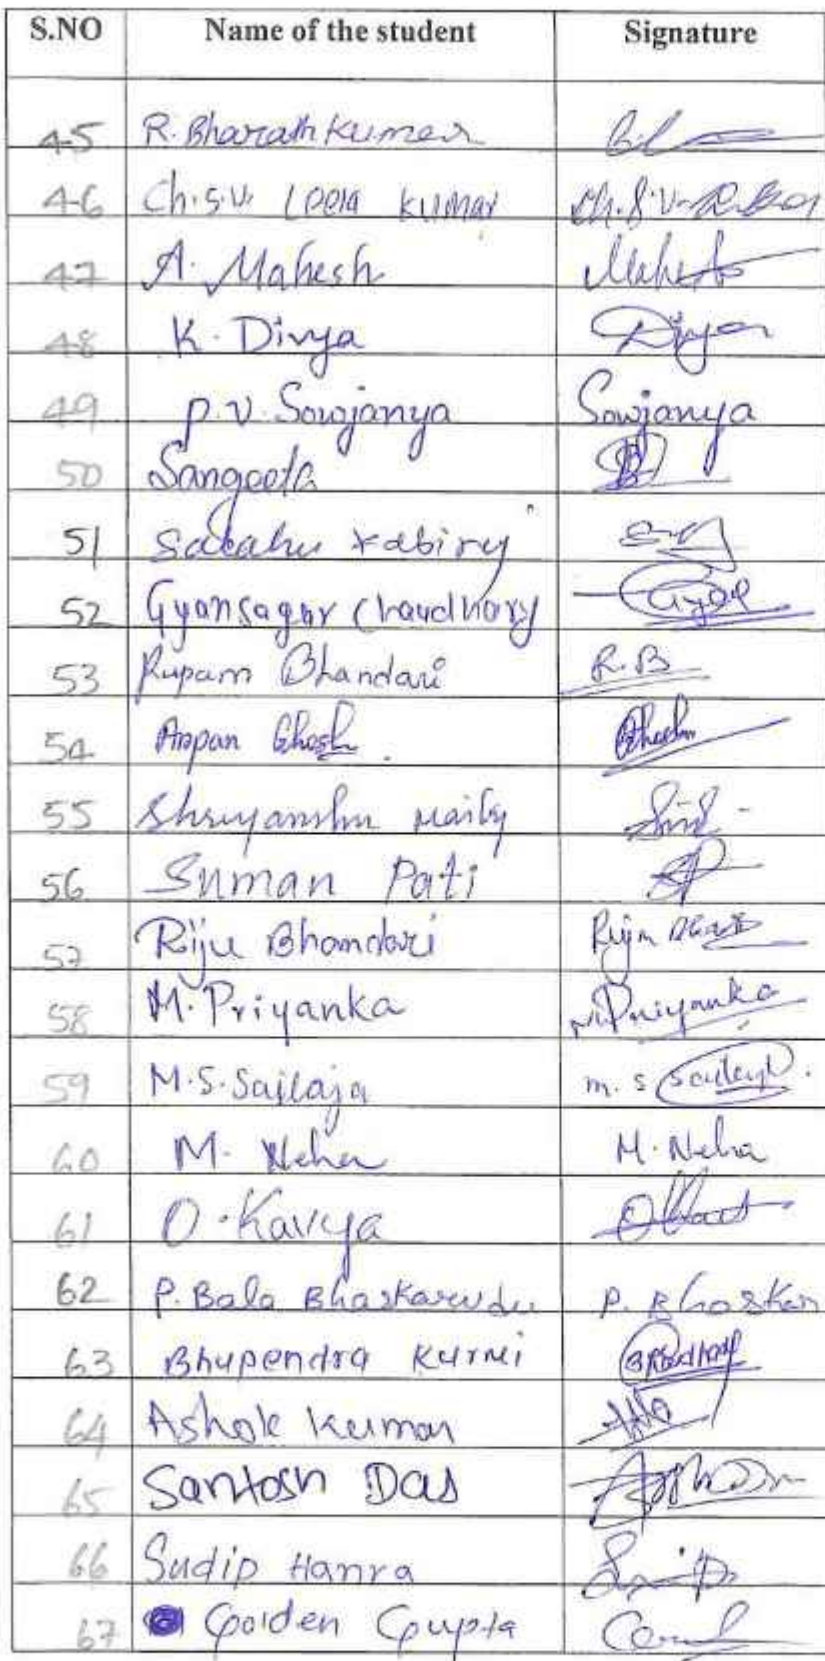 S.NO Name of the student Signature
45 R. Bharath Kumar
46 Ch.S.V. Leela Kumar Ch.S.V.
47 A. Mahesh Mahesh
48 K. Divya Divya
49 P.V. Sowjanya Sowjanya
50 Sangeeta
51 Kabiraj
52 Gyansagar Chaudhary Gyan
53 Rupam Bhandari R.B
54 Arpan Ghosh. Ghosh
55 Shreyanshu Maity
56 Suman Pati SP
57 Riju Bhandari Riju
58 M. Priyanka M. Priyanka
59 M.S. Sailaja M. S
60 M. Neha M. Neha
61 O. Kavya
62 P. Bala Bhaskarudu P. Bhaskar
63 Bhupendra Kurmi
64 Ashok Kumar
65 Santosh Das
66 Sudip Hanra
67 Golden Gupta